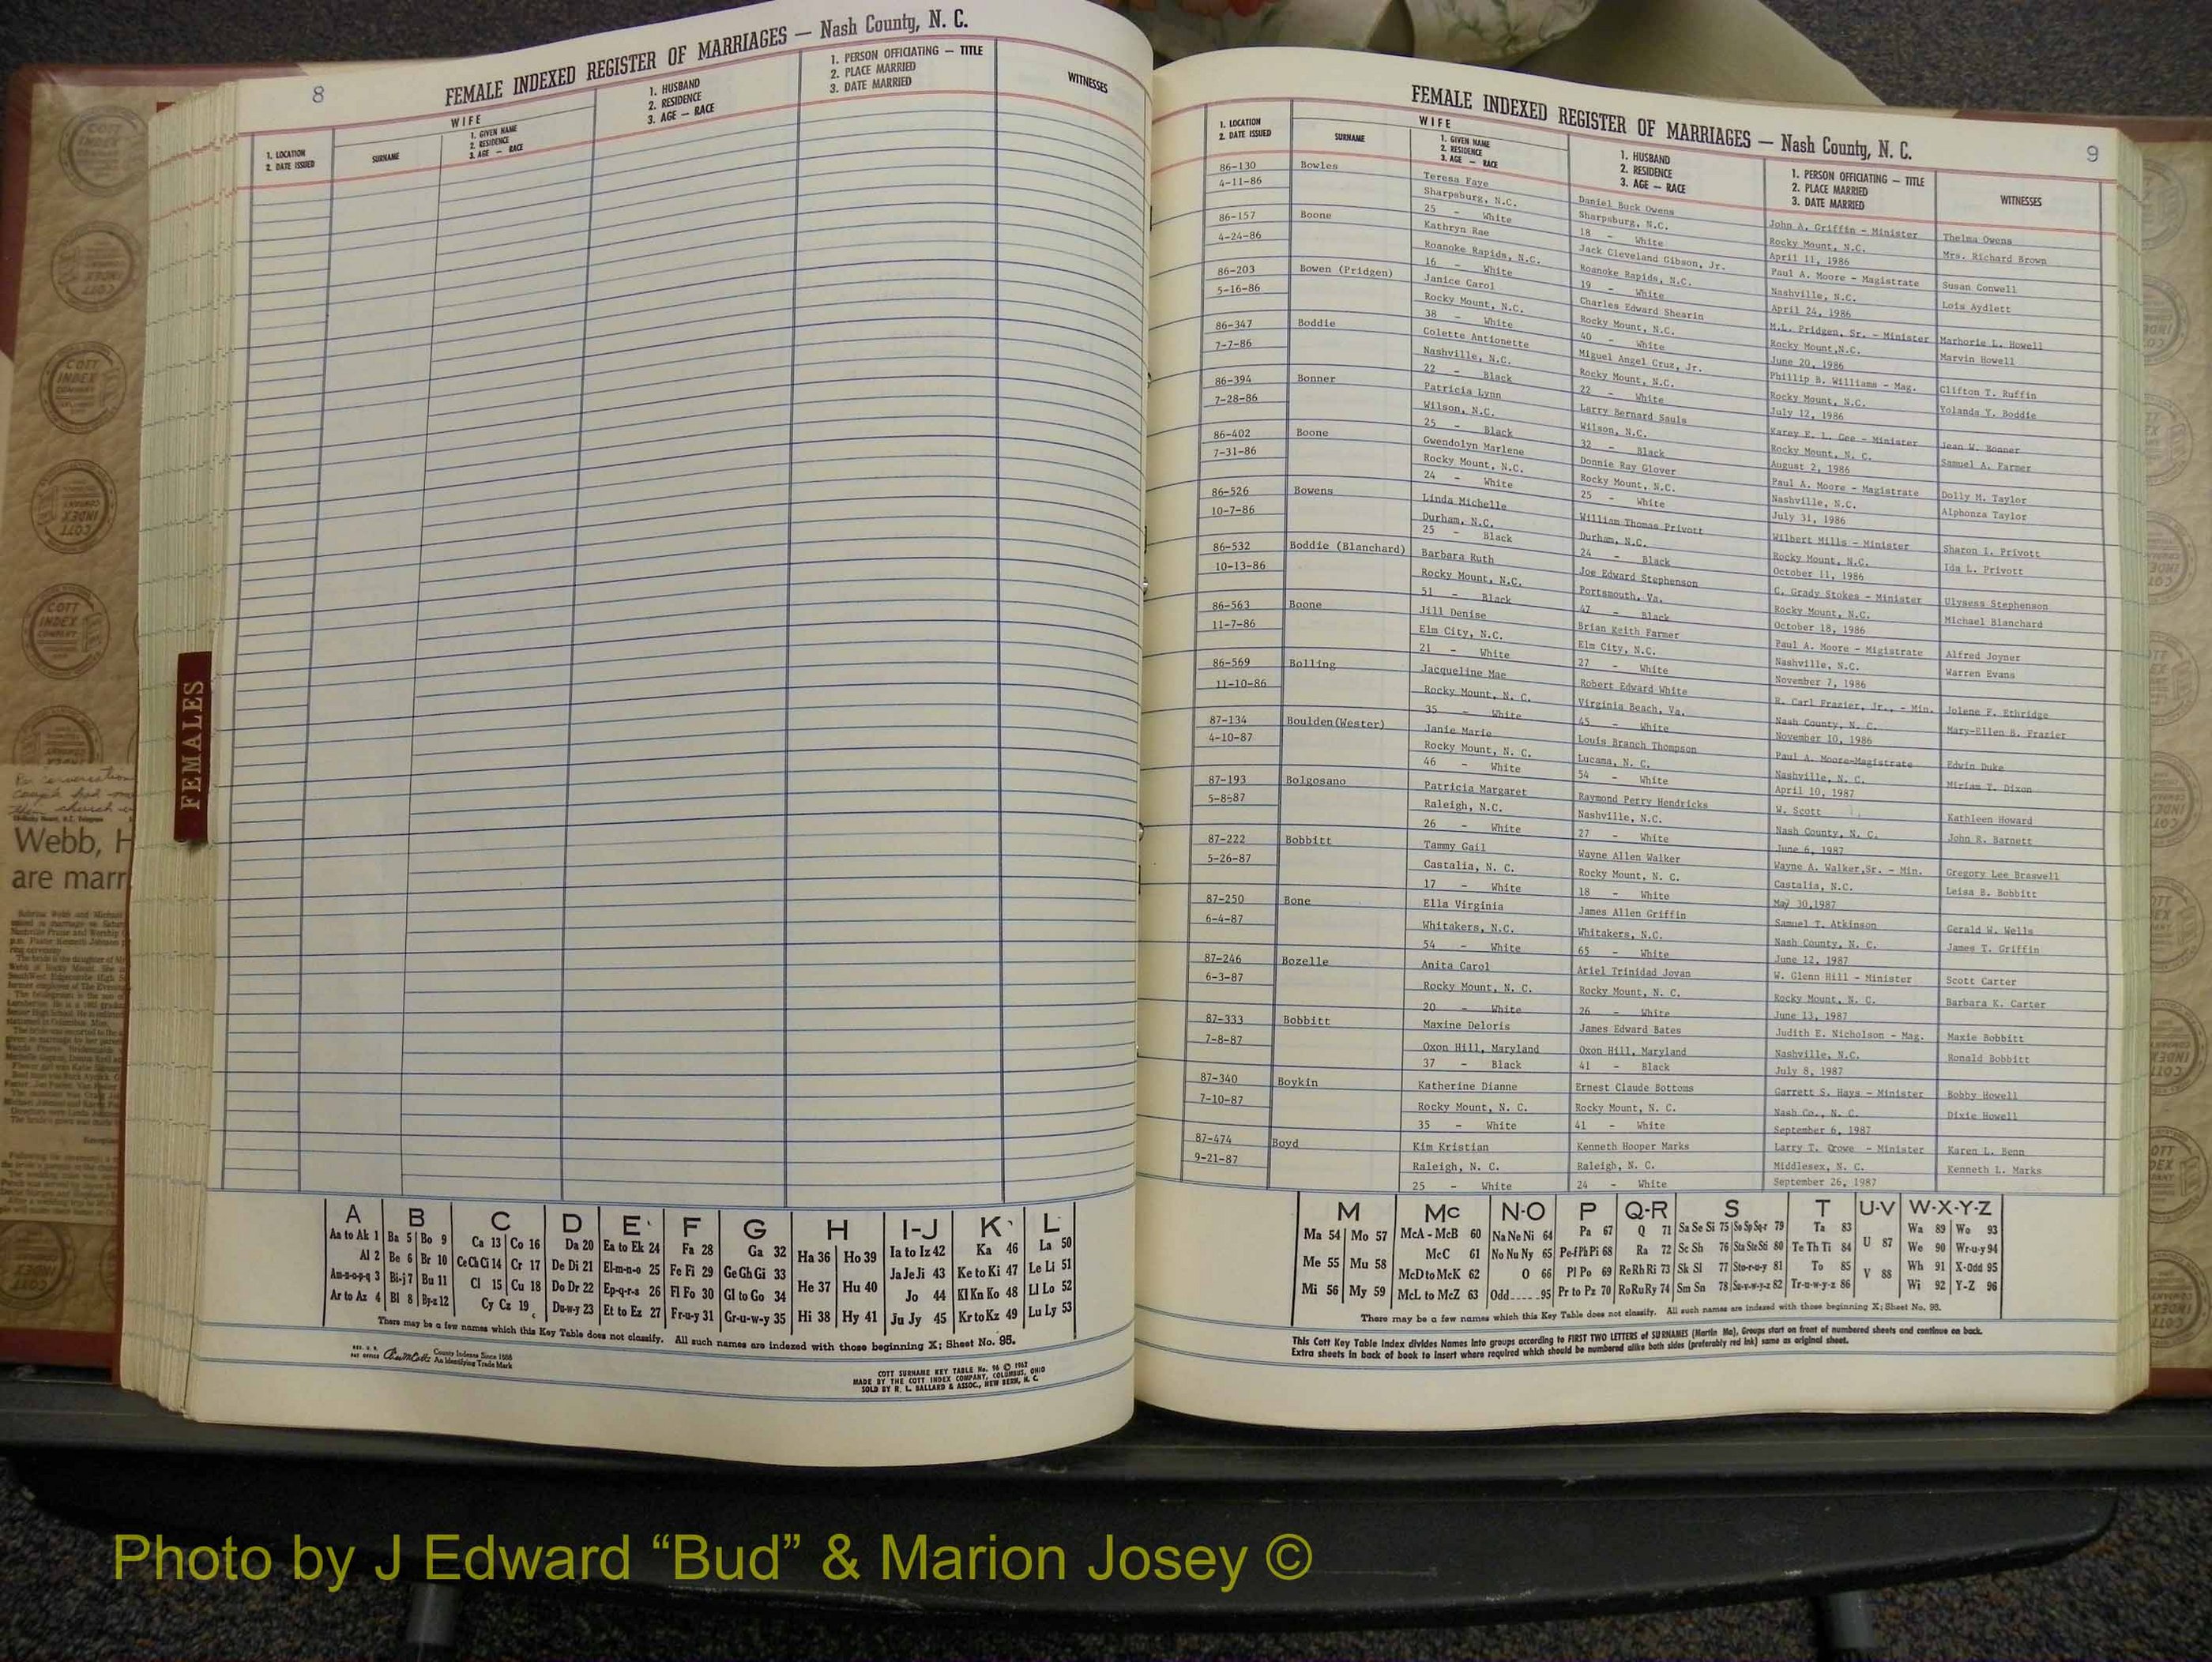 8
FEMALE INDEXED REGISTER OF MARRIAGES — Nash County, N. C.
1. LOCATION
2. DATE ISSUED
WIFE
SURNAME
1. GIVEN NAME
2. RESIDENCE
3. AGE — RACE
1. HUSBAND
2. RESIDENCE
3. AGE — RACE
1. PERSON OFFICIATING — TITLE
2. PLACE MARRIED
3. DATE MARRIED
WITNESSES
FEMALES
Webb, H
are marr
A B C D E F G H I-J K L
Aa to Ak 1 Ba 5 Bo 9 Ca 13 Co 16 Da 20 Ea to Ek 24 Fa 28 Ga 32 Ha 36 Ho 39 Ia to Iz 42 Ka 46 La 50
Al 2 Be 6 Br 10 Ce Ch Ci 14 Cr 17 De Di 21 El-m-n-o 25 Fe Fi 29 Ge Gh Gi 33 He 37 Hu 40 Ja Je Ji 43 Ke to Ki 47 Le Li 51
Am-n-o-p-q 3 Bi-j 7 Bu 11 Cl 15 Cu 18 Do Dr 22 Ep-q-r-s 26 Fl Fo 30 Gl to Go 34 Hi 38 Hy 41 Jo 44 Kl Kn Ko 48 Ll Lo 52
Ar to Az 4 Bl 8 By-z 12 Cy Cz 19 Du-w-y 23 Et to Ez 27 Fr-u-y 31 Gr-u-w-y 35 Ju Jy 45 Kr to Kz 49 Lu Ly 53
There may be a few names which this Key Table does not classify. All such names are indexed with those beginning X; Sheet No. 95.
County Indexes Since 1888
An Identifying Trade Mark
COTT SURNAME KEY TABLE No. 96 © 1962
MADE BY THE COTT INDEX COMPANY, COLUMBUS, OHIO
SOLD BY R. L. BALLARD & ASSOC., NEW BERN, N. C.
FEMALE INDEXED REGISTER OF MARRIAGES — Nash County, N. C.
9
1. LOCATION
2. DATE ISSUED
WIFE
SURNAME
1. GIVEN NAME
2. RESIDENCE
3. AGE — RACE
1. HUSBAND
2. RESIDENCE
3. AGE — RACE
1. PERSON OFFICIATING — TITLE
2. PLACE MARRIED
3. DATE MARRIED
WITNESSES
86-130 Bowles Teresa Faye Daniel Buck Owens John A. Griffin - Minister Thelma Owens
4-11-86 Sharpsburg, N.C. Sharpsburg, N.C. Rocky Mount, N.C. Mrs. Richard Brown
25 - White 18 - White April 11, 1986
86-157 Boone Kathryn Rae Jack Cleveland Gibson, Jr. Paul A. Moore - Magistrate Susan Conwell
4-24-86 Roanoke Rapids, N.C. Roanoke Rapids, N.C. Nashville, N.C. Lois Aydlett
16 - White 19 - White April 24, 1986
86-203 Bowen (Pridgen) Janice Carol Charles Edward Shearin M.L. Pridgen, Sr. - Minister Marhorie L. Howell
5-16-86 Rocky Mount, N.C. Rocky Mount, N.C. Rocky Mount,N.C. Marvin Howell
38 - White 40 - White June 20, 1986
86-347 Boddie Colette Antionette Miguel Angel Cruz, Jr. Phillip B. Williams - Mag. Clifton T. Ruffin
7-7-86 Nashville, N.C. Rocky Mount, N.C. Rocky Mount, N.C. Yolanda Y. Boddie
22 - Black 22 - White July 12, 1986
86-394 Bonner Patricia Lynn Larry Bernard Sauls Karey E. L. Gee - Minister Jean W. Bonner
7-28-86 Wilson, N.C. Wilson, N.C. Rocky Mount, N. C. Samuel A. Farmer
25 - Black 32 - Black August 2, 1986
86-402 Boone Gwendolyn Marlene Donnie Ray Glover Paul A. Moore - Magistrate Dolly M. Taylor
7-31-86 Rocky Mount, N.C. Rocky Mount, N.C. Nashville, N.C. Alphonza Taylor
24 - White 25 - White July 31, 1986
86-526 Bowens Linda Michelle William Thomas Privott Wilbert Mills - Minister Sharon L. Privott
10-7-86 Durham, N.C. Durham, N.C. Rocky Mount, N.C. Ida L. Privott
25 - Black 24 - Black October 11, 1986
86-532 Boddie (Blanchard) Barbara Ruth Joe Edward Stephenson C. Grady Stokes - Minister Ulysess Stephenson
10-13-86 Rocky Mount, N.C. Portsmouth, Va. Rocky Mount, N.C. Michael Blanchard
51 - Black 47 - Black October 18, 1986
86-563 Boone Jill Denise Brian Keith Farmer Paul A. Moore - Migistrate Alfred Joyner
11-7-86 Elm City, N.C. Elm City, N.C. Nashville, N.C. Warren Evans
21 - White 27 - White November 7, 1986
86-569 Bolling Jacqueline Mae Robert Edward White R. Carl Frazier, Jr., - Min. Jolene F. Ethridge
11-10-86 Rocky Mount, N. C. Virginia Beach, Va. Nash County, N. C. Mary-Ellen B. Frazier
35 - White 45 - White November 10, 1986
87-134 Boulden(Wester) Janie Marie Louis Branch Thompson Paul A. Moore-Magistrate Edwin Duke
4-10-87 Rocky Mount, N. C. Lucama, N. C. Nashville, N. C. Miriam T. Dixon
46 - White 54 - White April 10, 1987
87-193 Bolgosano Patricia Margaret Raymond Perry Hendricks W. Scott Kathleen Howard
5-8587 Raleigh, N.C. Nashville, N.C. Nash County, N. C. John R. Barnett
26 - White 27 - White June 6, 1987
87-222 Bobbitt Tammy Gail Wayne Allen Walker Wayne A. Walker,Sr. - Min. Gregory Lee Braswell
5-26-87 Castalia, N. C. Rocky Mount, N. C. Castalia, N.C. Leisa B. Bobbitt
17 - White 18 - White May 30,1987
87-250 Bone Ella Virginia James Allen Griffin Samuel T. Atkinson Gerald W. Wells
6-4-87 Whitakers, N.C. Whitakers, N.C. Nash County, N. C. James T. Griffin
54 - White 65 - White June 12, 1987
87-246 Bozelle Anita Carol Ariel Trinidad Jovan W. Glenn Hill - Minister Scott Carter
6-3-87 Rocky Mount, N. C. Rocky Mount, N. C. Rocky Mount, N. C. Barbara K. Carter
20 - White 26 - White June 13, 1987
87-333 Bobbitt Maxine Deloris James Edward Bates Judith E. Nicholson - Mag. Maxie Bobbitt
7-8-87 Oxon Hill, Maryland Oxon Hill, Maryland Nashville, N.C. Ronald Bobbitt
37 - Black 41 - Black July 8, 1987
87-340 Boykin Katherine Dianne Ernest Claude Bottoms Garrett S. Hays - Minister Bobby Howell
7-10-87 Rocky Mount, N. C. Rocky Mount, N. C. Nash Co., N. C. Dixie Howell
35 - White 41 - White September 6, 1987
87-474 Boyd Kim Kristian Kenneth Hooper Marks Larry T. Crowe - Minister Karen L. Benn
9-21-87 Raleigh, N. C. Raleigh, N. C. Middlesex, N. C. Kenneth L. Marks
25 - White 24 - White September 26, 1987
M Mc N-O P Q-R S T U-V W-X-Y-Z
Ma 54 Mo 57 McA - McB 60 Na Ne Ni 64 Pa 67 Q 71 Sa Se Si 75 So Sp Sq-r 79 Ta 83 U 87 Wa 89 Wo 93
Me 55 Mu 58 McC 61 No Nu Ny 65 Pe-f Ph Pi 68 Ra 72 Sc Sh 76 Sta Ste Sti 80 Te Th Ti 84 V 88 We 90 Wr-u-y 94
Mi 56 My 59 McD to McK 62 O 66 Pl Po 69 Re Rh Ri 73 Sk Sl 77 Sto-r-u-y 81 To 85 Wh 91 X-Odd 95
McL to McZ 63 Odd.....95 Pr to Pz 70 Ro Ru Ry 74 Sm Sn 78 Su-v-w-y-z 82 Tr-u-w-y-z 86 Wi 92 Y-Z 96
There may be a few names which this Key Table does not classify. All such names are indexed with those beginning X; Sheet No. 95.
This Cott Key Table Index divides Names into groups according to FIRST TWO LETTERS of SURNAMES (Martin Ma), Groups start on front of numbered sheets and continue on back.
Extra sheets in back of book to insert where required which should be numbered alike both sides (preferably red ink) same as original sheet.
Photo by J Edward “Bud” & Marion Josey ©